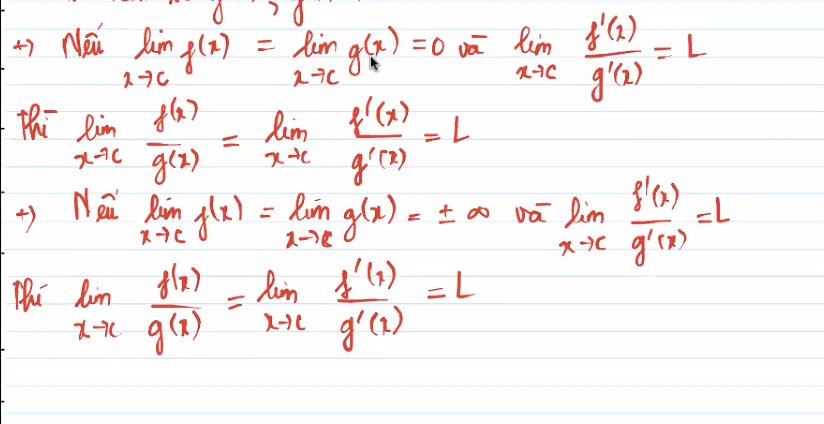 +) Nếu lim x→c f(x) = lim x→c g(x) = 0 và lim x→c f'(x)/g'(x) = L
thì lim x→c f(x)/g(x) = lim x→c f'(x)/g'(x) = L
+) Nếu lim x→c f(x) = lim x→c g(x) = ± ∞ và lim x→c f'(x)/g'(x) = L
thì lim x→c f(x)/g(x) = lim x→c f'(x)/g'(x) = L